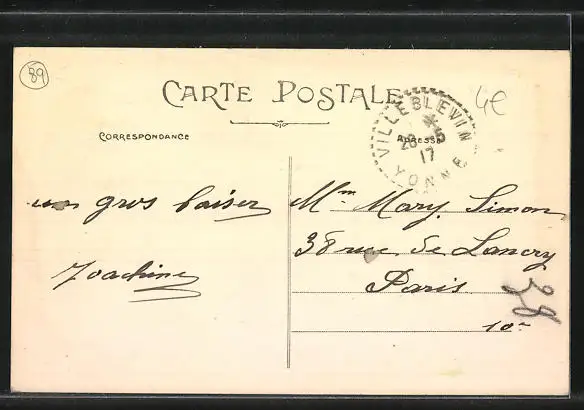 89
CARTE POSTALE
4€
VILLEBLEVIN
28 -5
17
YONNE
CORRESPONDANCE
ADRESSE
un gros baiser
Joachine
Mme Mary. Simon
38 rue de Lancry
Paris
38
10e